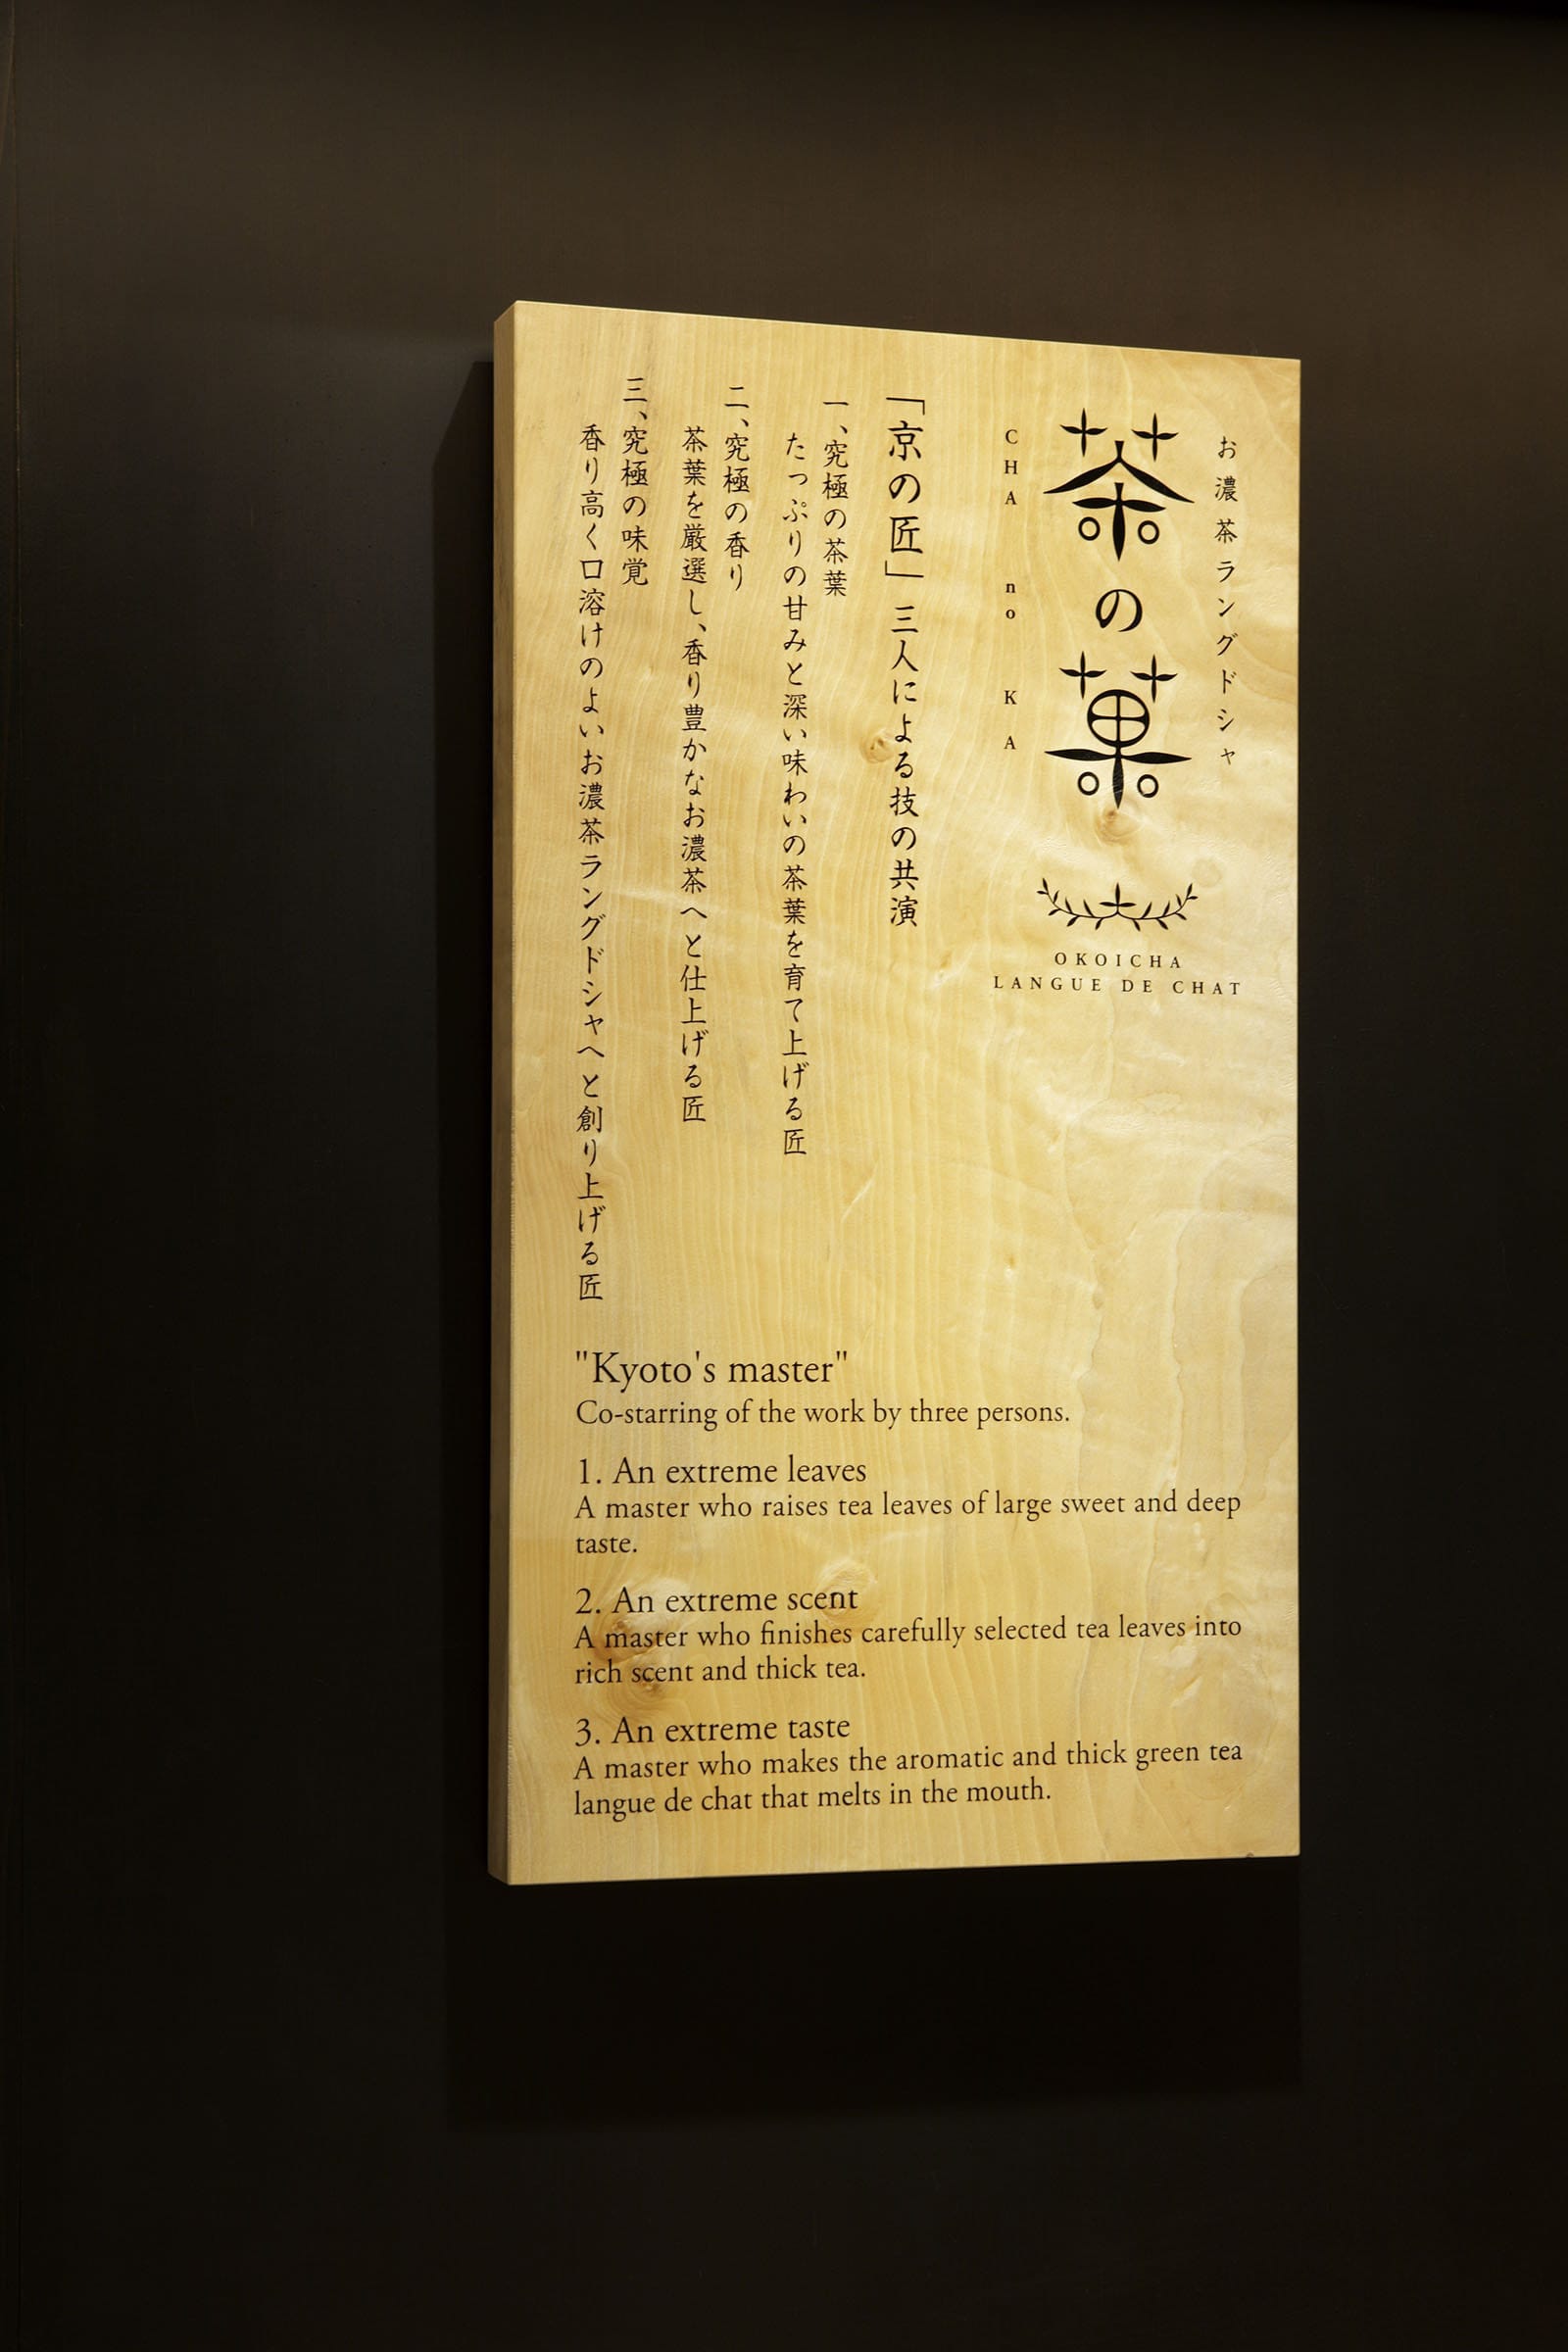 お濃茶ラングドシャ
茶の菓
CHA no KA
OKOICHA
LANGUE DE CHAT
「京の匠」三人による技の共演
一、究極の茶葉
たっぷりの甘みと深い味わいの茶葉を育て上げる匠
二、究極の香り
茶葉を厳選し、香り豊かなお濃茶へと仕上げる匠
三、究極の味覚
香り高く口溶けのよいお濃茶ラングドシャへと創り上げる匠
"Kyoto's master"
Co-starring of the work by three persons.
1. An extreme leaves
A master who raises tea leaves of large sweet and deep
taste.
2. An extreme scent
A master who finishes carefully selected tea leaves into
rich scent and thick tea.
3. An extreme taste
A master who makes the aromatic and thick green tea
langue de chat that melts in the mouth.